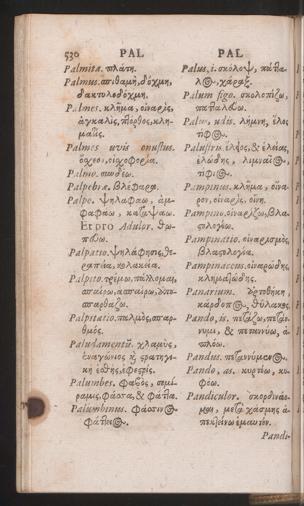 530 PAL PAL
Palmita. πλάτη.
Palmus. σπιθαμὴ, δόχμη,
δακτυλοδόχμη.
Palmes. κλῆμα, οἰναρὶς,
ἀγκαλὶς, πτόρθος, κλη-
ματὶς.
Palmes uvis onustus.
ὄσχεοι, οἰσχοφορία.
Palmo.
Palpebræ. βλέφαρα.
Palpo. ψηλαφάω, ἀμ-
φαφάω, καταψάω.
Et pro Adulor. θω-
πεύω.
Palpatio. ψηλάφησις, θε-
ραπεία, κολακεία.
Palpito. τρέμω, πάλλομαι,
σπαίρω, ἀσπαίρω, ἀπο-
σπαρθάζω.
Palpitatio. παλμὸς, σπαρ-
θμός.
Paludamentũ. χλαμὺς,
ἐναγώνιος ἢ στρατηγι-
κὴ ἐσθὴς, ἐφεστρὶς.
Palumbes. φάβος, σεμί-
ραμις, φάσσα, & φάττα.
Palumbinus. φάσσινος,
φάττινος.
Palus, i. σκόλοψ, πάτταλος,
χάραξ.
Palum figo. σκολοπίζω,
πατταλεύω.
Palus, udis. λίμνη, ἕλος,
τίφος.
Palustris. ἕλειος, & ἑλείας,
ἑλώδης, λιμναῖος,
τίφιος.
Pampinus. κλῆμα, οἴνα-
ρον, οἰναρὶς, οἴνη.
Pampino. οἰναρίζω, βλα-
στολογέω.
Pampinatio. οἰναρισμὸς,
βλαστολογία.
Pampinaceus. οἰναρώδης,
κληματώδης.
Panarium. ἀρτοθήκη,
κάρδοπος, θύλακος.
Pando, is. πετάζω, πετάν-
νυμι, & πεταννύω, ἁ-
πλόω.
Pandus. πεταννύμενος.
Pando, as. κυρτέω, κυ-
φόω.
Pandiculor. σκορδινάο-
μαι, μετὰ χάσμης ἀ-
ποτείνω ἐμαυτὸν.
Pandi-